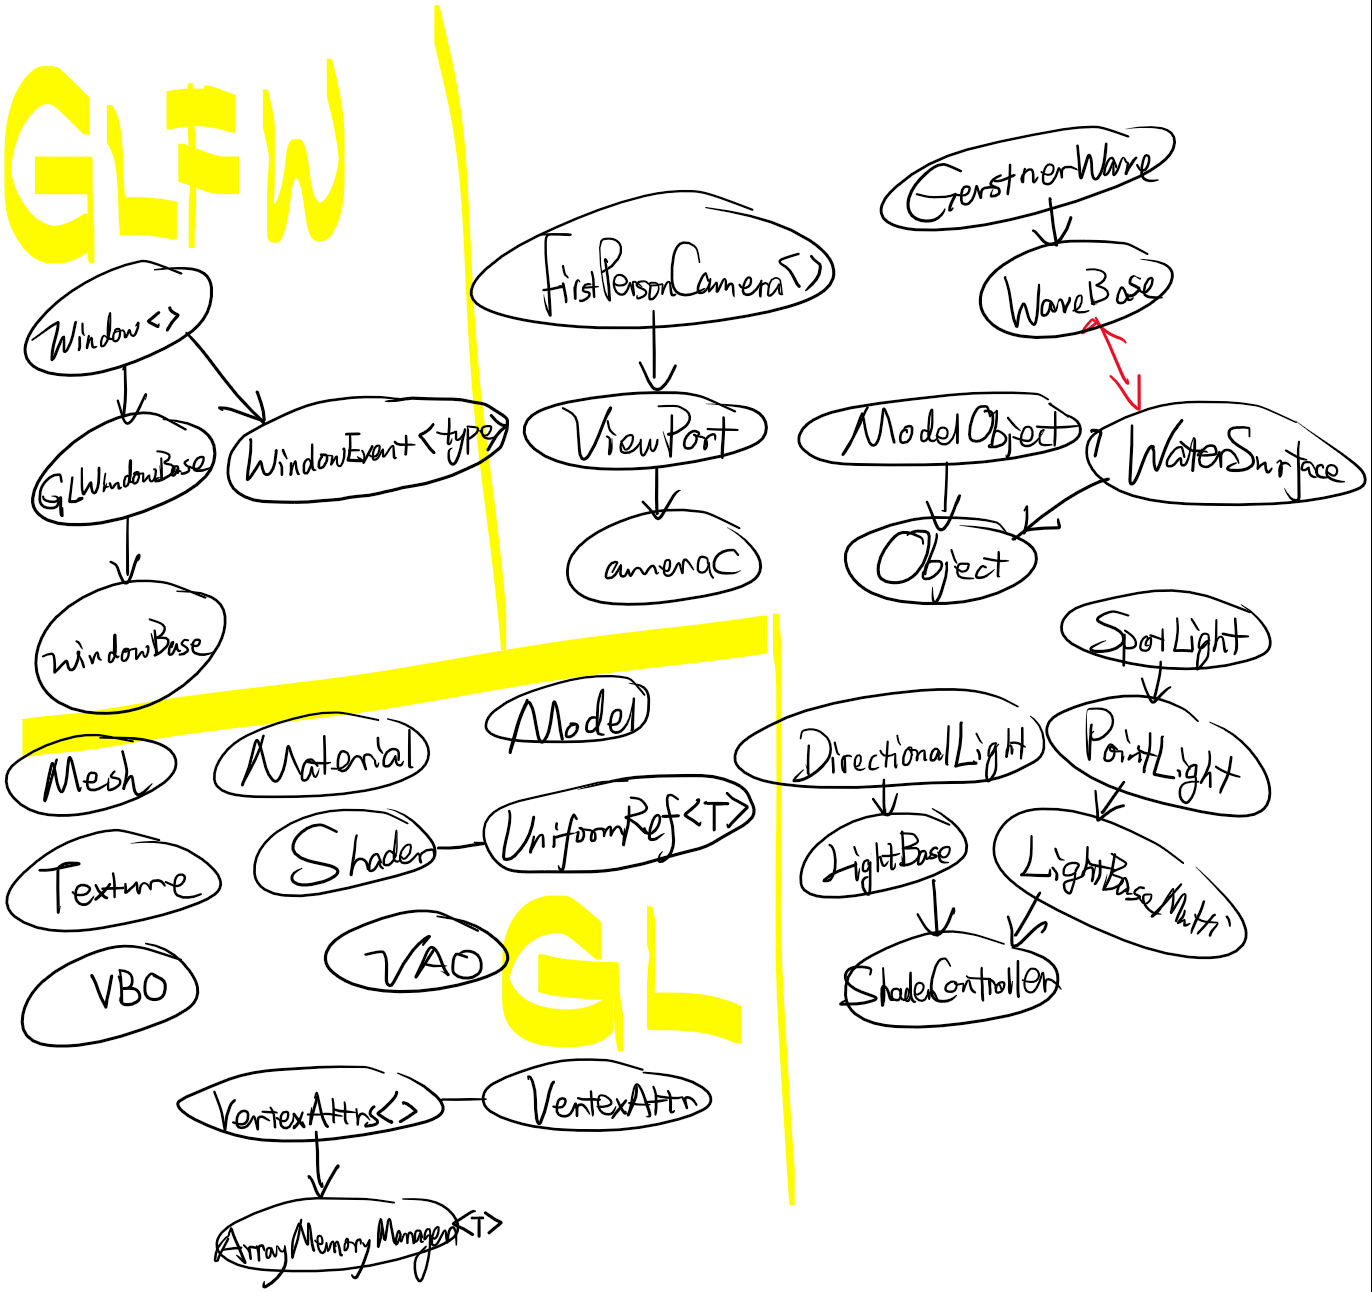 GLFW
Window<>
GLWindowBase
WindowEvent<type>
windowBase
FirstPersonCamera<>
ViewPort
amenaC
GerstnerWave
WaveBase
ModelObject
WaterSurface
Object
SpotLight
DirectionalLight
PointLight
LightBase
LightBaseMulti
ShaderController
Mesh
Material
Model
Texture
Shader
UniformRef<T>
VBO
VAO
GL
VertexAttrs<>
VertexAttr
ArrayMemoryManager<T>